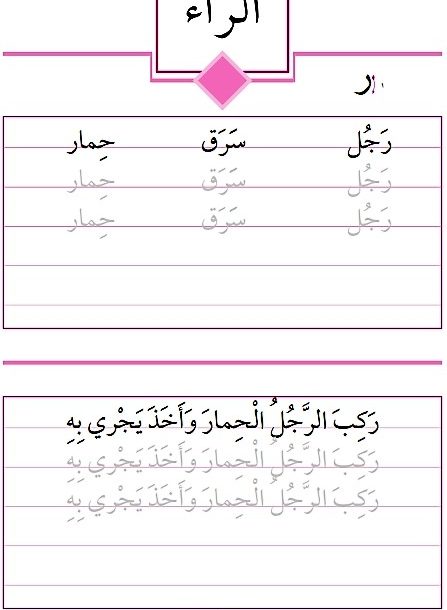 الراء
ر
رَجُل سَرَق حِمار
رَجُل سَرَق حِمار
رَجُل سَرَق حِمار
رَكِبَ الرَّجُلُ الْحِمارَ وَأَخَذَ يَجْري بِهِ
رَكِبَ الرَّجُلُ الْحِمارَ وَأَخَذَ يَجْري بِهِ
رَكِبَ الرَّجُلُ الْحِمارَ وَأَخَذَ يَجْري بِهِ